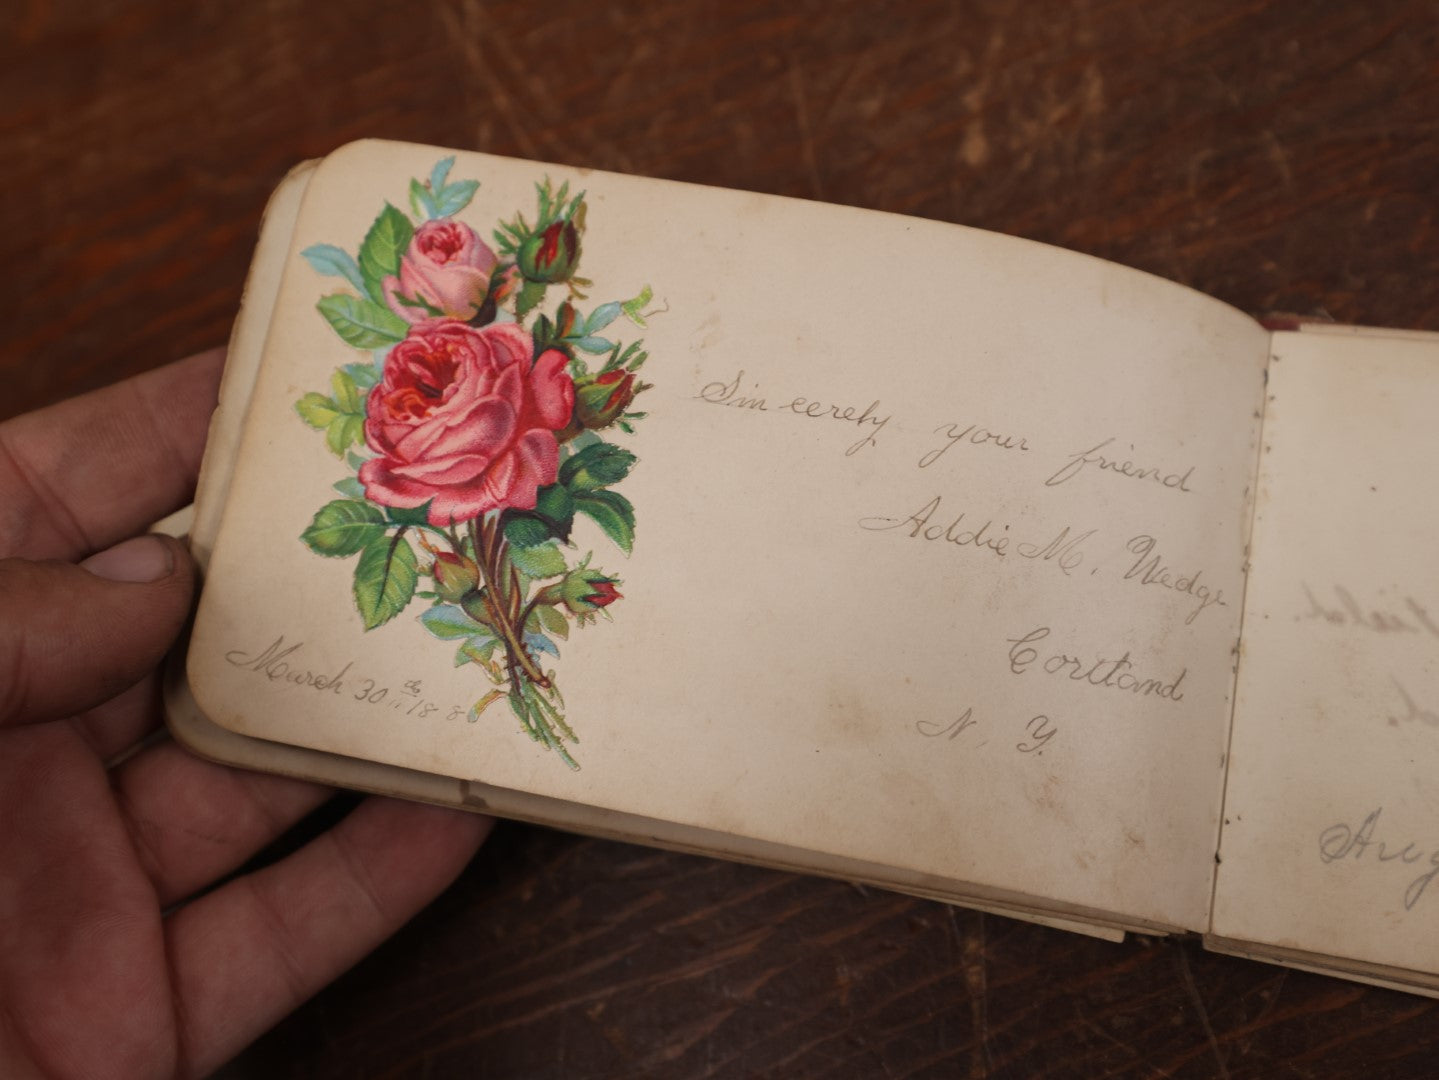 Sincerely your friend
Addie M. Wedge
Cortland
N. Y.
March 30th 188
Aug